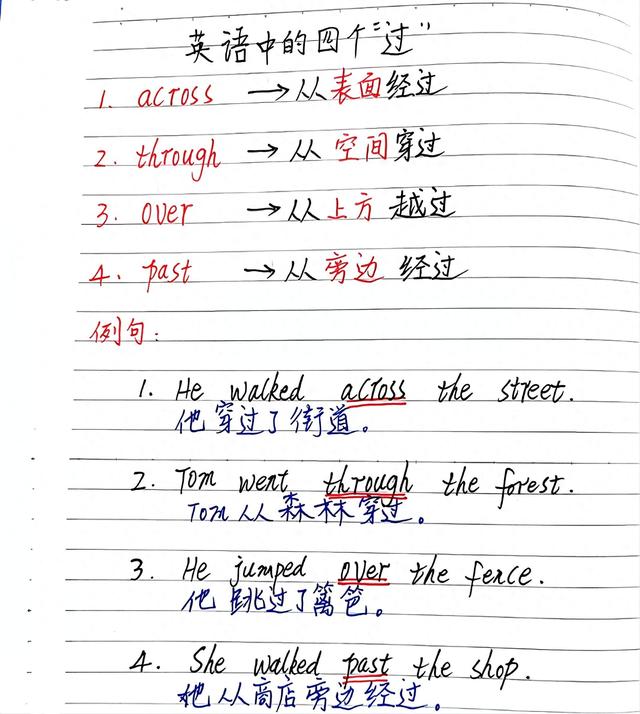 英语中的四个"过"
1. across →从表面经过
2. through → 从空间穿过
3. over →从上方越过
4. past →从旁边经过
例句:
1. He walked across the street.
他穿过了街道。
2. Tom went through the forest.
Tom从森林穿过。
3. He jumped over the fence.
他跳过了篱笆。
4. She walked past the shop.
她从商店旁边经过。